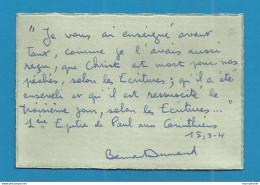 "Je vous ai enseigné avant
tout, comme je l'avais aussi
reçu, que Christ est mort pour nos
péchés, selon les Ecritures; qu'il a été
enseveli et qu'il est ressuscité le
troisième jour, selon les Ecritures..."
1ère Epitre de Paul aux Corinthiens
15,3-4